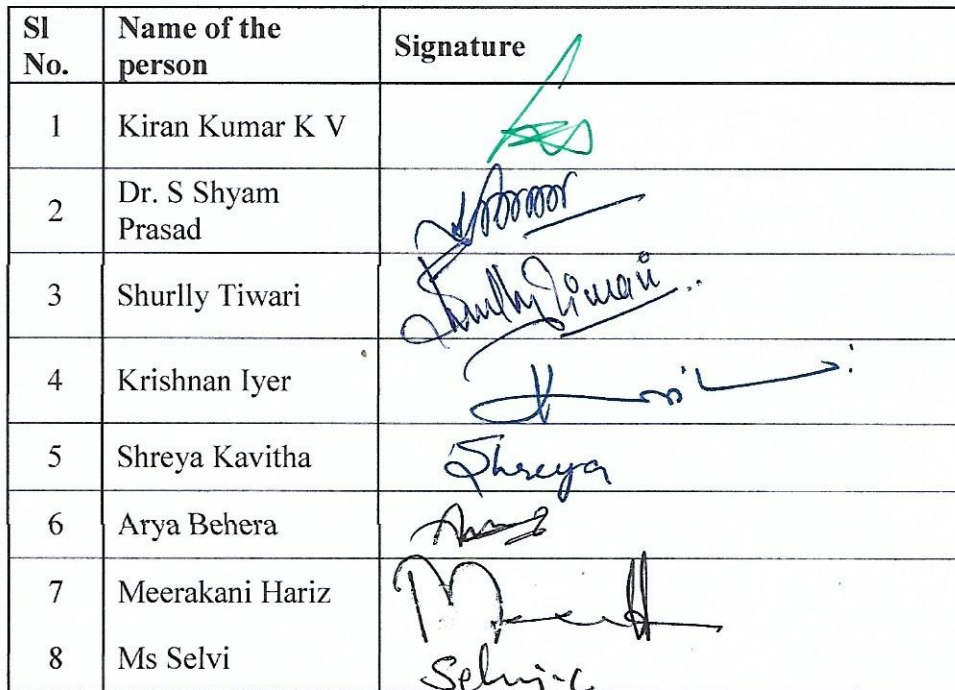 Sl No.
Name of the person
Signature
1 Kiran Kumar K V
2 Dr. S Shyam Prasad
3 Shurlly Tiwari Shurlly Tiwari
4 Krishnan Iyer
5 Shreya Kavitha Shreya
6 Arya Behera
7 Meerakani Hariz
8 Ms Selvi Selvi.C